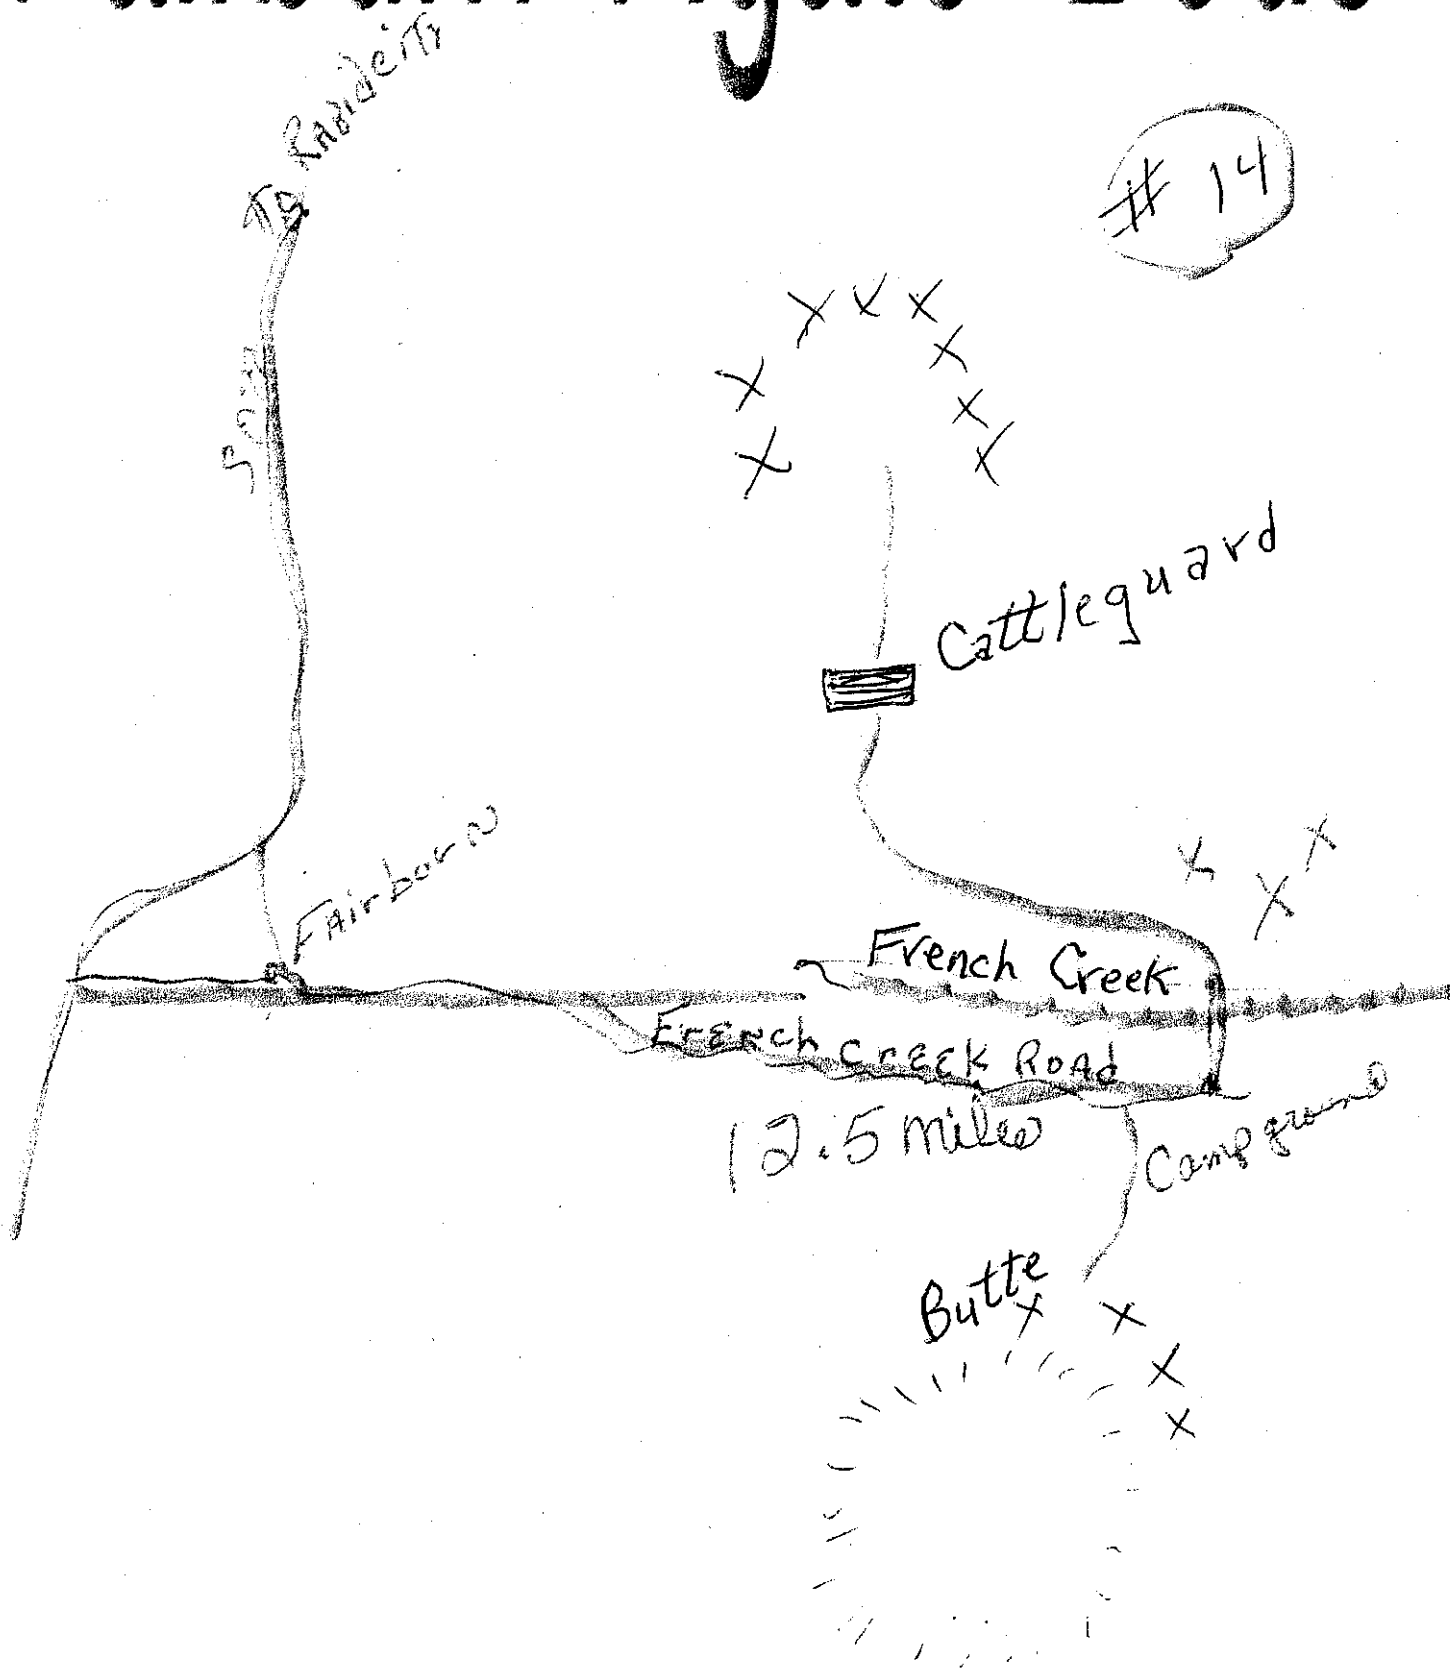 To RAPidciTy
# 14
Cattleguard
FAirburN
French Creek
FrENch CrEEK ROAd
12.5 miles
Campground
Butte